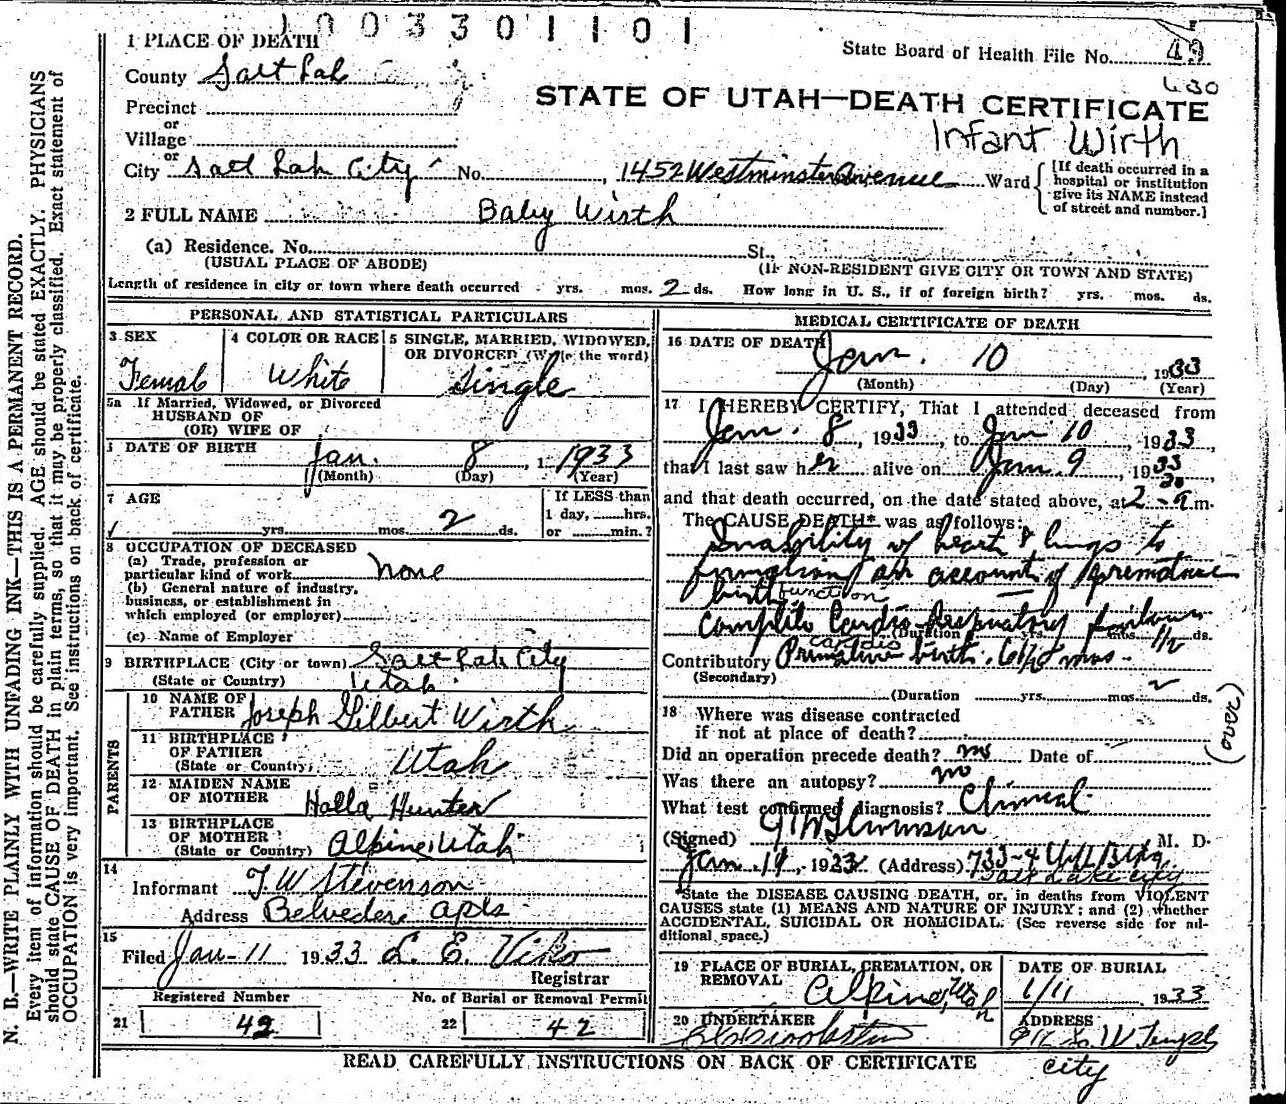 1003301101
1 PLACE OF DEATH
State Board of Health File No. 49
County Salt Lak
630
Precinct
STATE OF UTAH—DEATH CERTIFICATE
or
Village
Infant Wirth
or
City Salt Lak City No. 1452 Westminster Avenue Ward
[If death occurred in a
hospital or institution
give its NAME instead
of street and number.]
2 FULL NAME Baby Wirth
(a) Residence. No. St.
(USUAL PLACE OF ABODE) (If NON-RESIDENT GIVE CITY OR TOWN AND STATE)
Length of residence in city or town where death occurred yrs. mos. 2 ds. How long in U. S., if of foreign birth? yrs. mos. ds.
PERSONAL AND STATISTICAL PARTICULARS
3 SEX 4 COLOR OR RACE 5 SINGLE, MARRIED, WIDOWED,
OR DIVORCED (Write the word)
Female White Single
5a If Married, Widowed, or Divorced
HUSBAND OF
(OR) WIFE OF
6 DATE OF BIRTH Jan. 8, 1933
(Month) (Day) (Year)
7 AGE If LESS than
1 day, hrs.
yrs. mos. 2 ds. or min.?
8 OCCUPATION OF DECEASED
(a) Trade, profession or
particular kind of work none
(b) General nature of industry,
business, or establishment in
which employed (or employer)
(c) Name of Employer
9 BIRTHPLACE (City or town) Salt Lak City
(State or Country) Utah
PARENTS
10 NAME OF
FATHER Joseph Gilbert Wirth
11 BIRTHPLACE
OF FATHER
(State or Country) Utah
12 MAIDEN NAME
OF MOTHER Holla Hunter
13 BIRTHPLACE
OF MOTHER
(State or Country) Alpine, Utah
14
Informant J W Stevenson
Address Belvedere Apts
15
Filed Jan-11 1933 L. E. Viko
Registrar
Registered Number No. of Burial or Removal Permit
21 42 22 42
MEDICAL CERTIFICATE OF DEATH
16 DATE OF DEATH Jan. 10, 1933
(Month) (Day) (Year)
17 I HEREBY CERTIFY, That I attended deceased from
Jan. 8, 1933, to Jan 10, 1933,
that I last saw her alive on Jan. 9, 1933,
and that death occurred, on the date stated above, at 2 30 a m.
The CAUSE DEATH* was as follows:
Inability of heart & lungs to
function on account of premature
birth function
complete Cardio-Respiratory failure
cardio (Duration yrs. mos. 1/2 ds.
Contributory Premature birth. 6 1/2 mos.
(Secondary)
(Duration yrs. mos. 2 ds.
18 Where was disease contracted
if not at place of death?
Did an operation precede death? no Date of
Was there an autopsy? no
What test confirmed diagnosis? Clinical
(Signed) M. D.
Jan. 19, 1933 (Address) 733-4
Salt Lake City
*State the DISEASE CAUSING DEATH, or, in deaths from VIOLENT
CAUSES state (1) MEANS AND NATURE OF INJURY; and (2) whether
ACCIDENTAL, SUICIDAL OR HOMICIDAL. (See reverse side for additional space.)
19 PLACE OF BURIAL, CREMATION, OR
REMOVAL Alpine, Utah
DATE OF BURIAL
1/11 1933
20 UNDERTAKER
ADDRESS
W Temple
City
(OVER)
READ CAREFULLY INSTRUCTIONS ON BACK OF CERTIFICATE
N. B.—WRITE PLAINLY WITH UNFADING INK—THIS IS A PERMANENT RECORD.
Every item of information should be carefully supplied. AGE should be stated EXACTLY. PHYSICIANS
should state CAUSE OF DEATH in plain terms, so that it may be properly classified. Exact statement of
OCCUPATION is very important. See instructions on back of certificate.